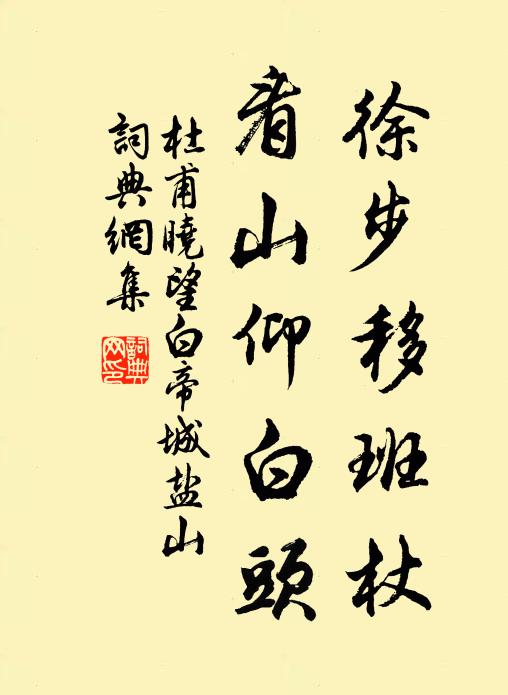 徐步移班杖
看山仰白頭
杜甫曉望白帝城盐山
詞典網集
詞典网印